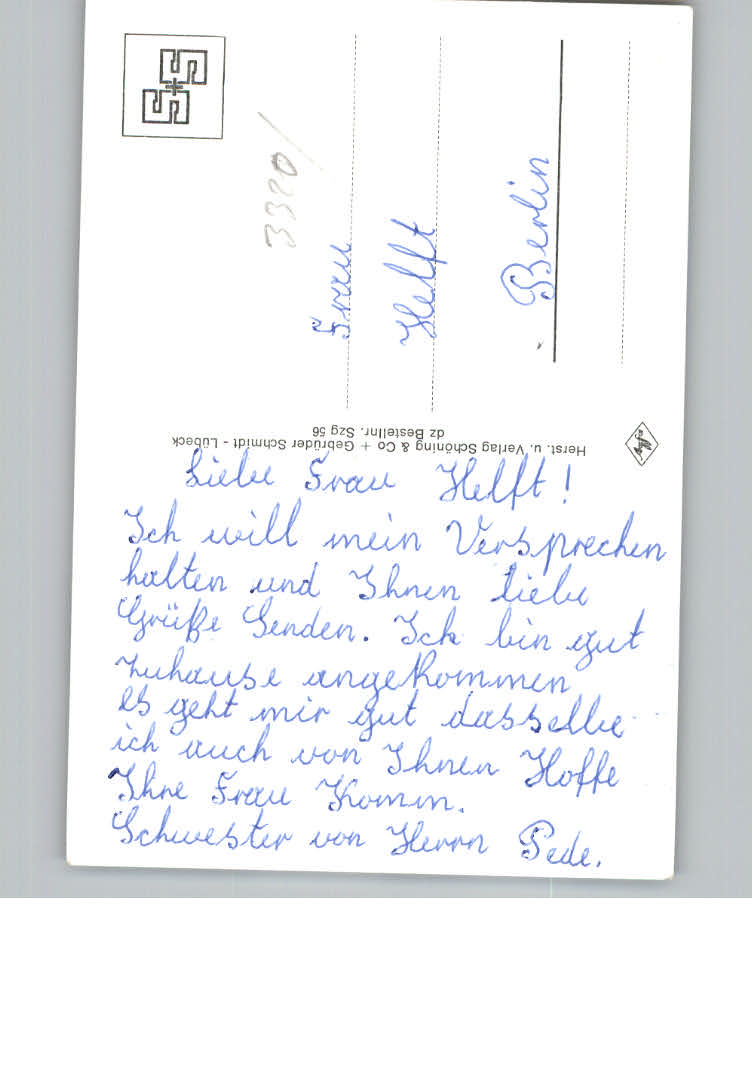 Liebe Frau Helft!
Ich will mein Versprechen
halten und Ihnen liebe
Grüße Senden. Ich bin gut
zuhause angekommen
es geht mir gut dasselbe
ich auch von Ihnen Hoffe
Ihre Frau Komm.
Schwester von Herrn Pede.
Herst. u. Verlag Schöning & Co + Gebrüder Schmidt - Lübeck
dz Bestellnr. Szg 56
3320/
Frau
Helft
Berlin
S+S